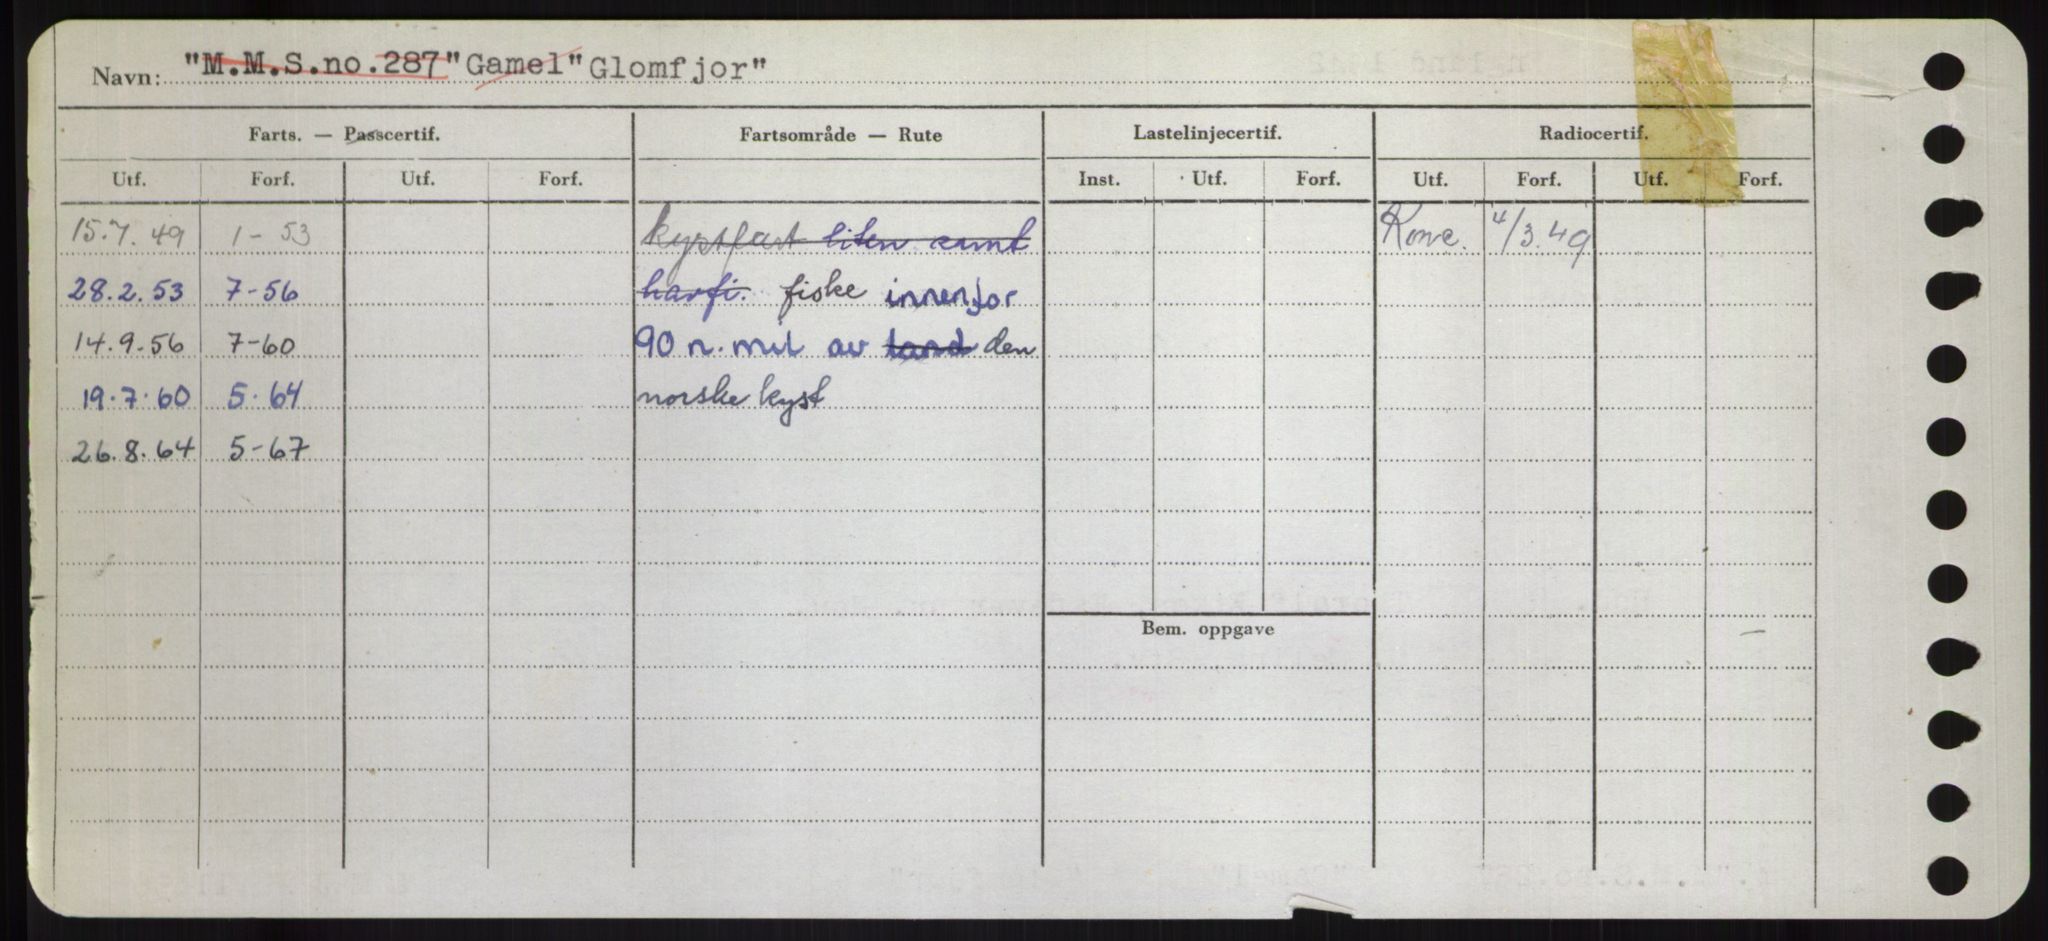 Navn: "M.M.S.no.287" "Gamel" "Glomfjor"
Farts. — Passcertif. Fartsområde — Rute Lastelinjecertif. Radiocertif.
Utf. Forf. Utf. Forf. Inst. Utf. Forf. Utf. Forf. Utf. Forf.
15.7.49 1-53 kystfart liten samt 4/3.49
28.2.53 7-56 havfi. fiske innenfor
14.9.56 7-60 90 n. mil av land den
19.7.60 5.64 norske kyst
26.8.64 5-67
Bem. oppgave